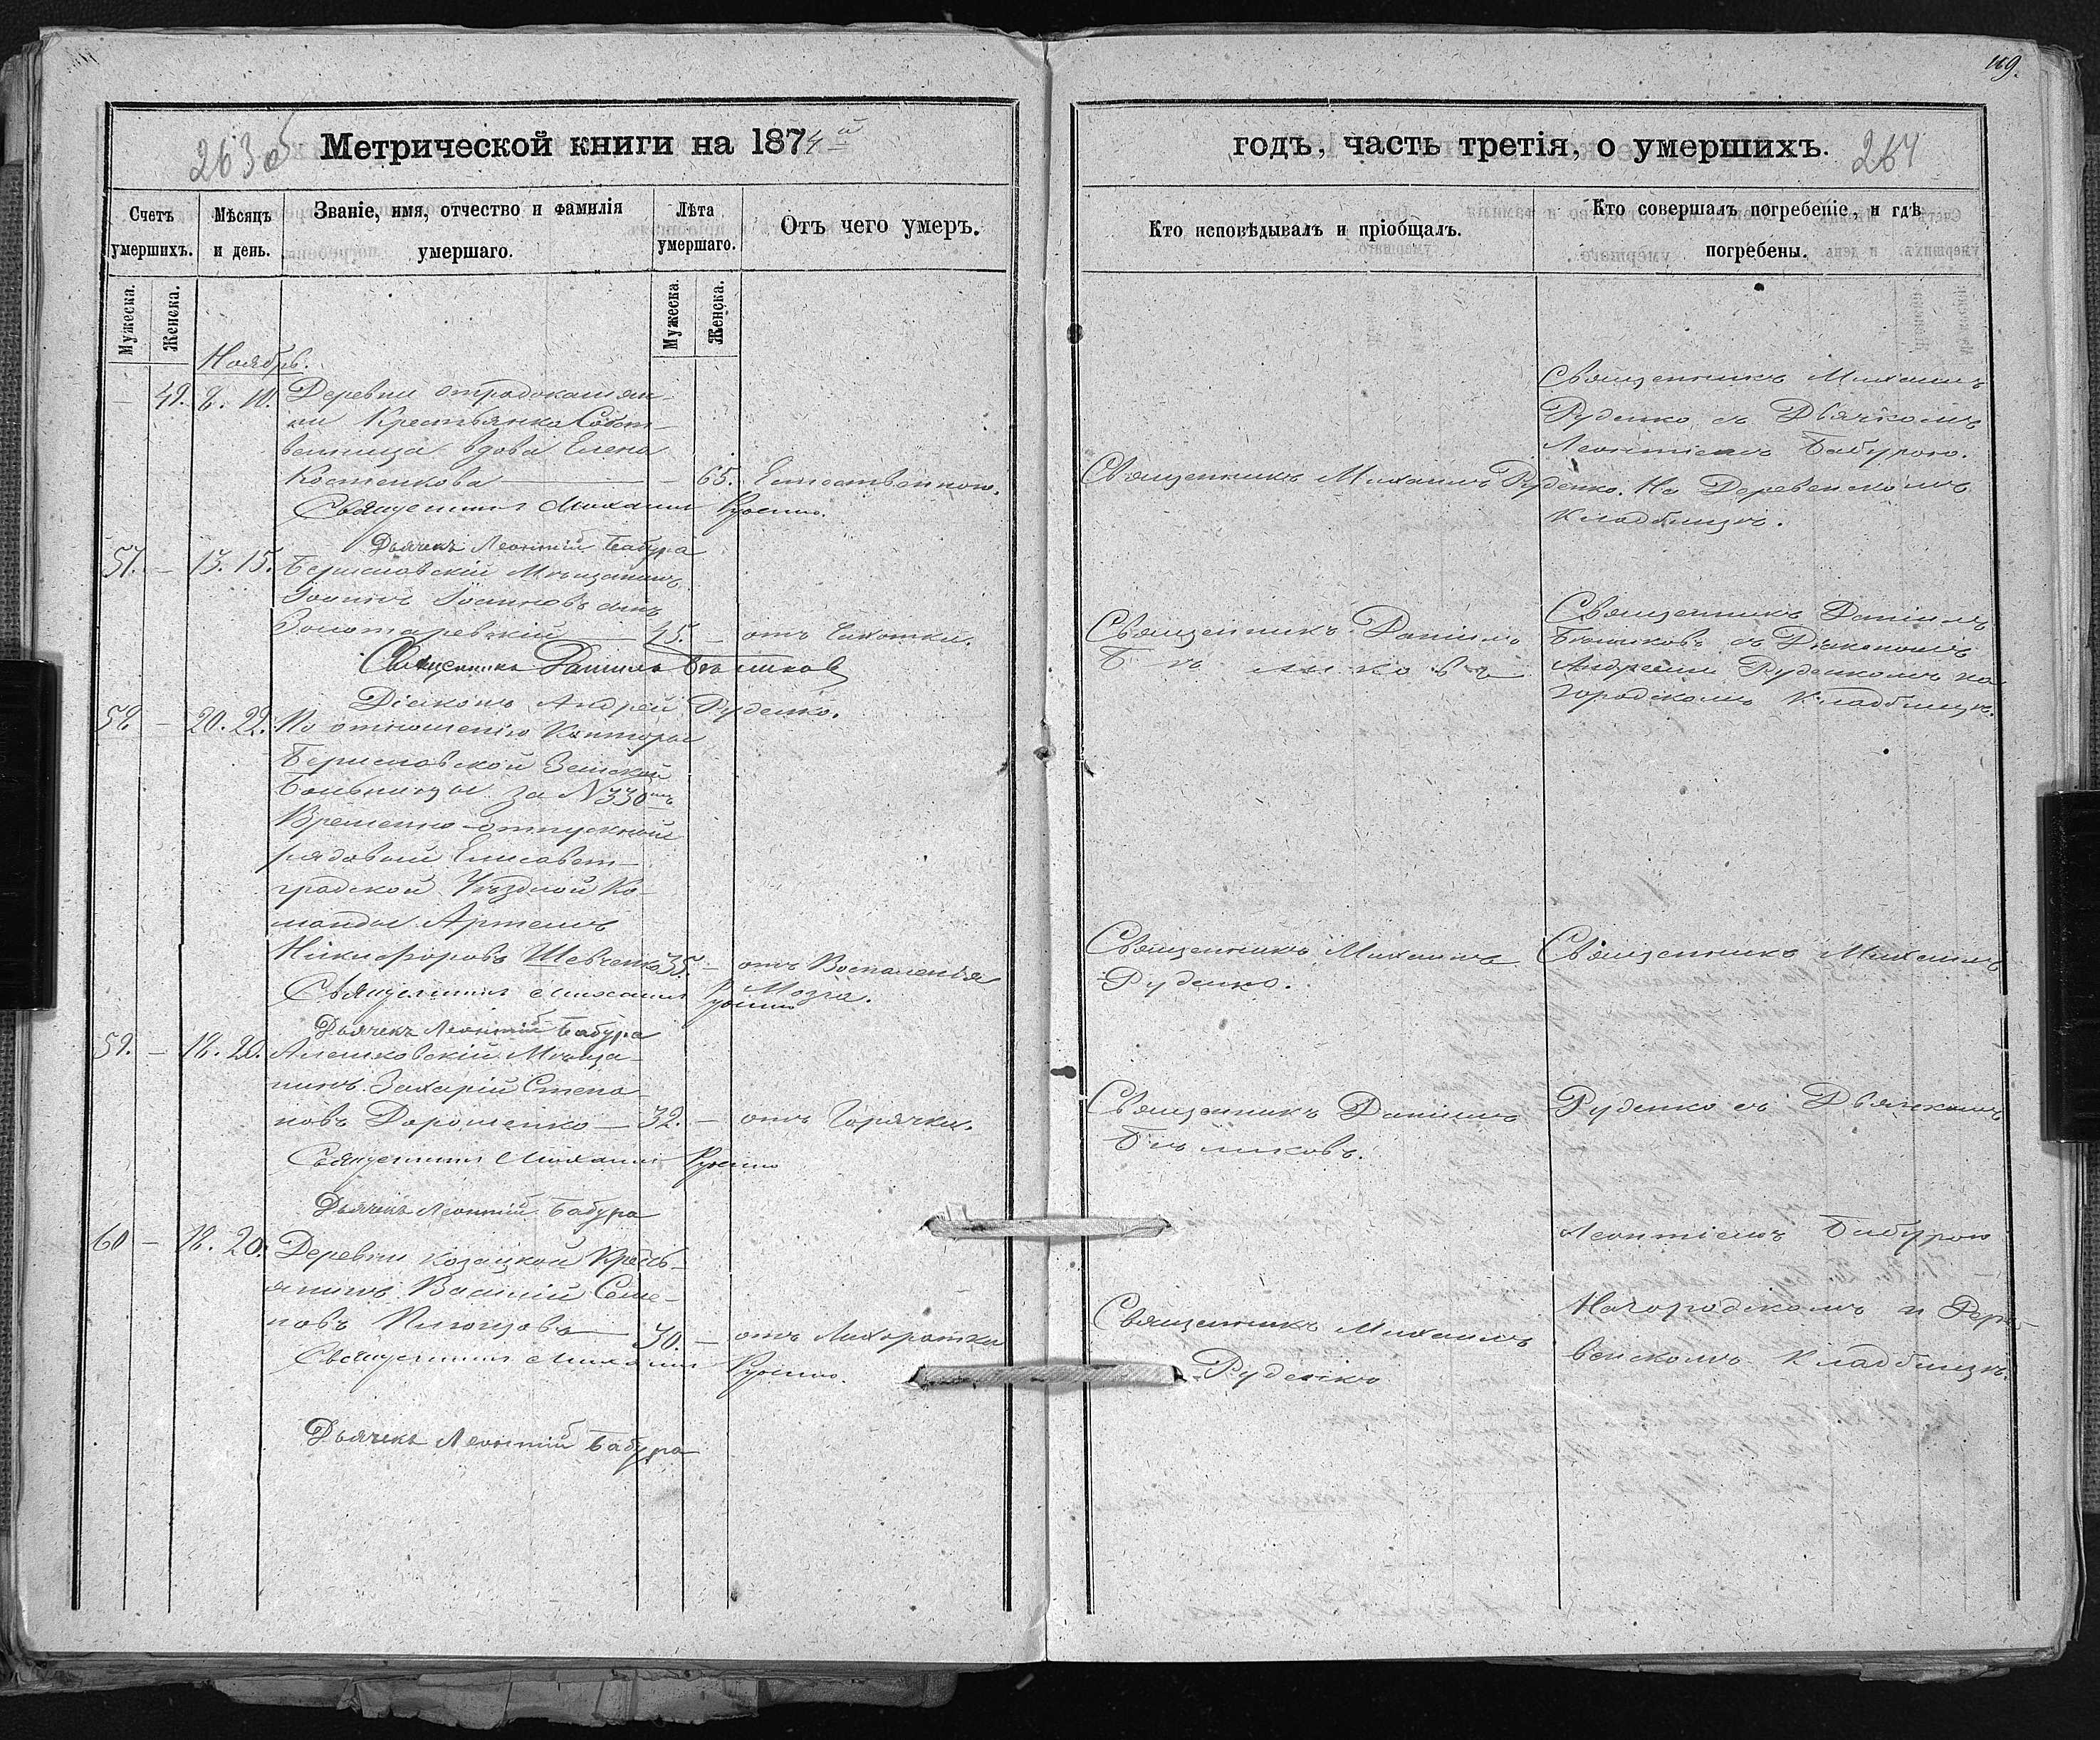 169.
263 об
Метрической книги на 1874й
годъ, часть третія, о умершихъ.
264
Счетъ умершихъ.
Мѣсяцъ и день.
Званіе, имя, отчество и фамилія умершаго.
Лѣта умершаго.
Отъ чего умеръ.
Кто исповѣдывалъ и пріобщалъ.
Кто совершалъ погребеніе, и гдѣ погребены.
Мужеска.
Женска.
Мужеска.
Женска.
Ноябрь.
49. 8. 10. Деревни Отрадокамян-
ки Крестьянка Собст-
венница вдова Елена
Костенкова — 65. Естественною.
Священникъ Михаилъ Руденко.
Дьячекъ Леонтій Бабура
Священникъ Михаилъ Руденко.
Священникъ Михаилъ
Руденко съ Дьячкомъ
Леонтіемъ Бабурою.
На Деревенскомъ
Кладбищѣ.
57. — 13. 15. Бериславскій Мѣщанинъ
Іоаннъ Іоанновъ сынъ
Золотаревскій — 45. — отъ Чихотки.
Священникъ Даніилъ Бѣликовъ
Діаконъ Андрей Руденко.
Священникъ Даніилъ
Бѣликовъ
Священникъ Даніилъ
Бѣликовъ съ Діакономъ
Андреемъ Руденкомъ на
городскомъ Кладбищѣ.
58. — 20. 22. По отношенію Конторы
Бериславской Земской
Больницы за N 330мъ
Временно-отпускной
рядовой Елисавет-
градской Уѣздной Ко-
манды Артемъ
Никифоровъ Шевченко 35. — отъ Воспаленія
Мозга.
Священникъ Михаилъ Руденко
Дьячекъ Леонтій Бабура
Священникъ Михаилъ
Руденко.
Священникъ Михаилъ
59. — 18. 20. Алешковскій Мѣща-
нинъ Захарій Степа-
новъ Дорошенко — 32. — отъ Горячки.
Священникъ Михаилъ Руденко
Дьячекъ Леонтій Бабура
Священникъ Даніилъ
Бѣликовъ.
Руденко съ Дьячкомъ
60 — 18. 20. Деревни Козацкой Кресть-
янинъ Василій Семе-
новъ — 30. — отъ Лихоратки
Священникъ Михаилъ Руденко.
Дьячекъ Леонтій Бабура
Священникъ Михаилъ
Руденко
Леонтіемъ Бабурою
На городскомъ и Дере-
венскомъ Кладбищѣ.